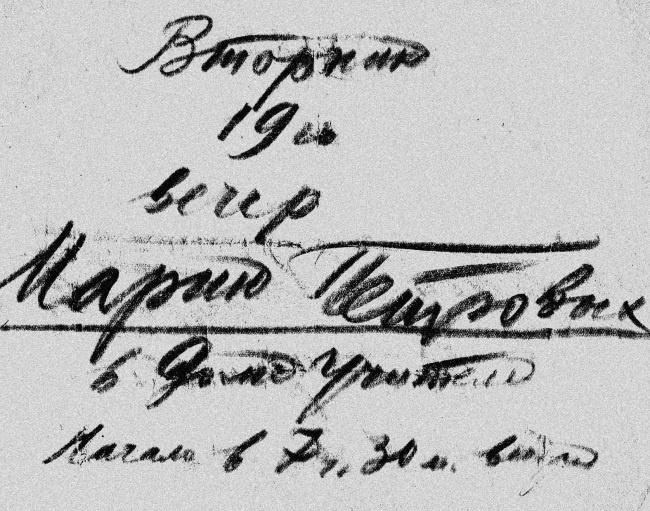 Вторник
19 м
вечер
Марии Петровых
в Доме Учителя
Начало в 7 ч. 30 м. вечера